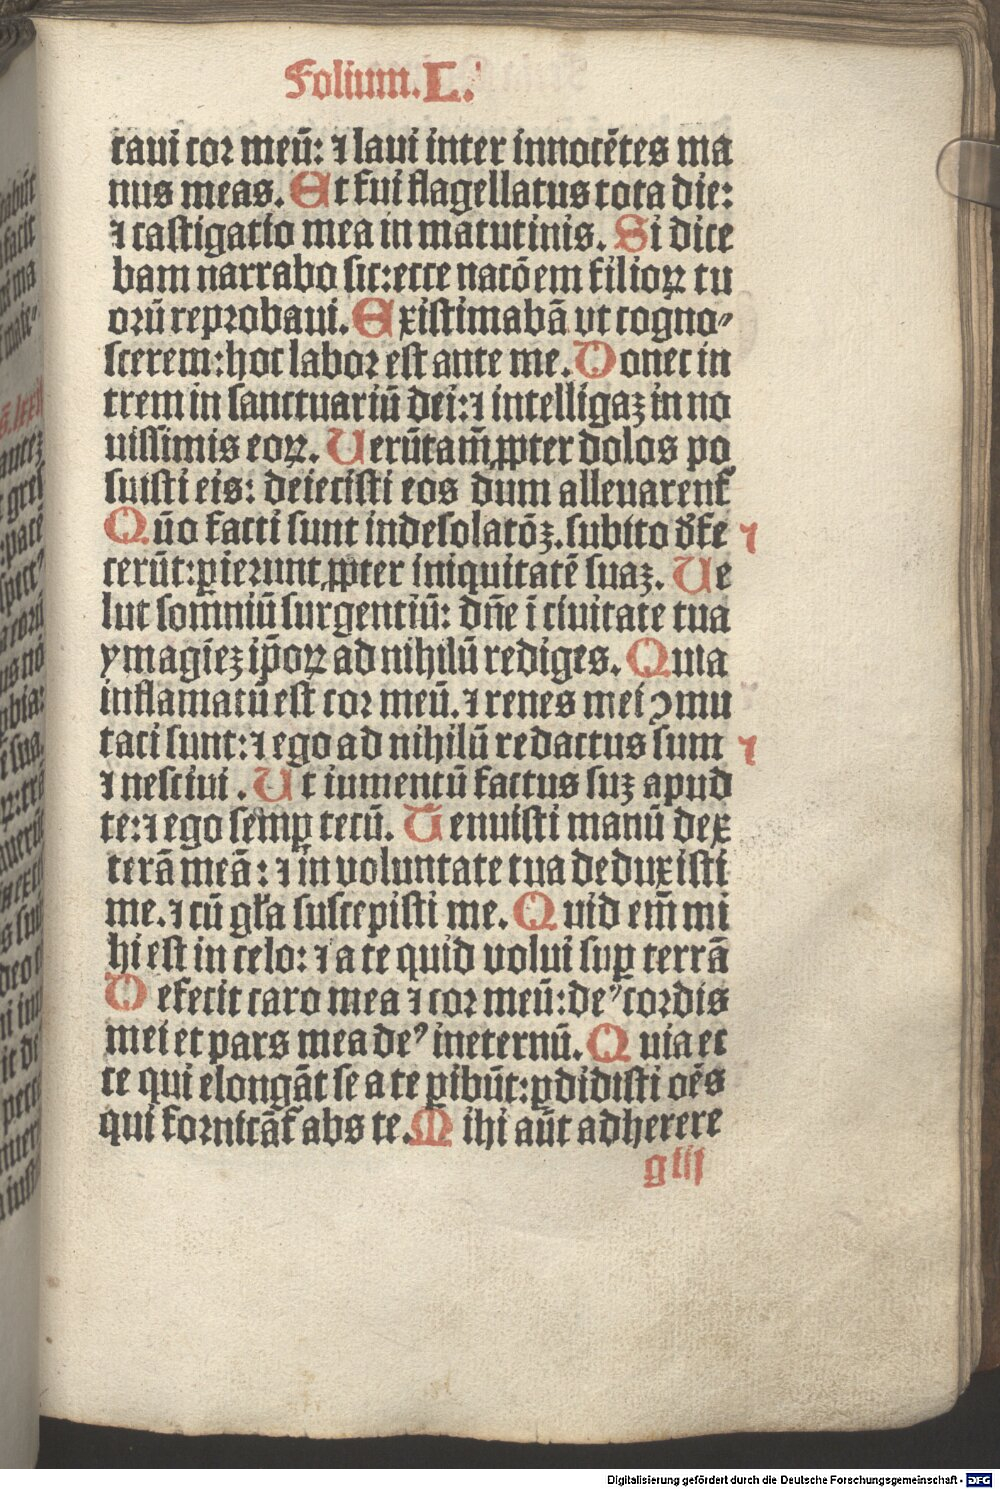 Folium.L.
caui cor meū: ⁊ laui inter innocētes ma
nus meas. Et fui flagellatus tota die:
⁊ castigatio mea in matutinis. Si dice
bam narrabo sic: ecce nacōem filioꝝ tu
orū reprobaui. Existimabā vt cogno⸗
scerem: hoc labor est ante me. Donec in
trem in sanctuariū dei: ⁊ intelligaꝫ in no
uissimis eoꝝ. Uerūtam̄ ꝓpter dolos po
suisti eis: deiecisti eos dum alleuarent᷑
Qūo facti sunt in desolatōꝫ. subito d᷑fe
cerūt: ꝑierunt ꝓpter iniquitatē suaꝫ. Ue
lut som̄niū surgentiū: dn̄e ī ciuitate tua
ymagīeꝫ ip̄oꝝ ad nihilū rediges. Quia
inflamatū est cor meū. ⁊ renes mei ꝯmu
tati sunt: ⁊ ego ad nihilū redactus sum
⁊ nesciui. Ut iumentū factus suꝫ apud
te: ⁊ ego semꝑ tecū. Tenuisti manū dex
terā meā: ⁊ in voluntate tua deduxisti
me. ⁊ cū gl̄a suscepisti me. Quid em̄ mi
hi est in celo: ⁊ a te quid volui suꝑ terrā
Defecit caro mea ⁊ cor meū: deꝰ cordis
mei et pars mea deꝰ in eternū. Quia ec
ce qui elongāt se a te ꝑibūt: ꝑdidisti oēs
qui fornicāt᷑ abs te. Mihi aūt adherere
g iii
Digitalisierung gefördert durch die Deutsche Forschungsgemeinschaft - DFG